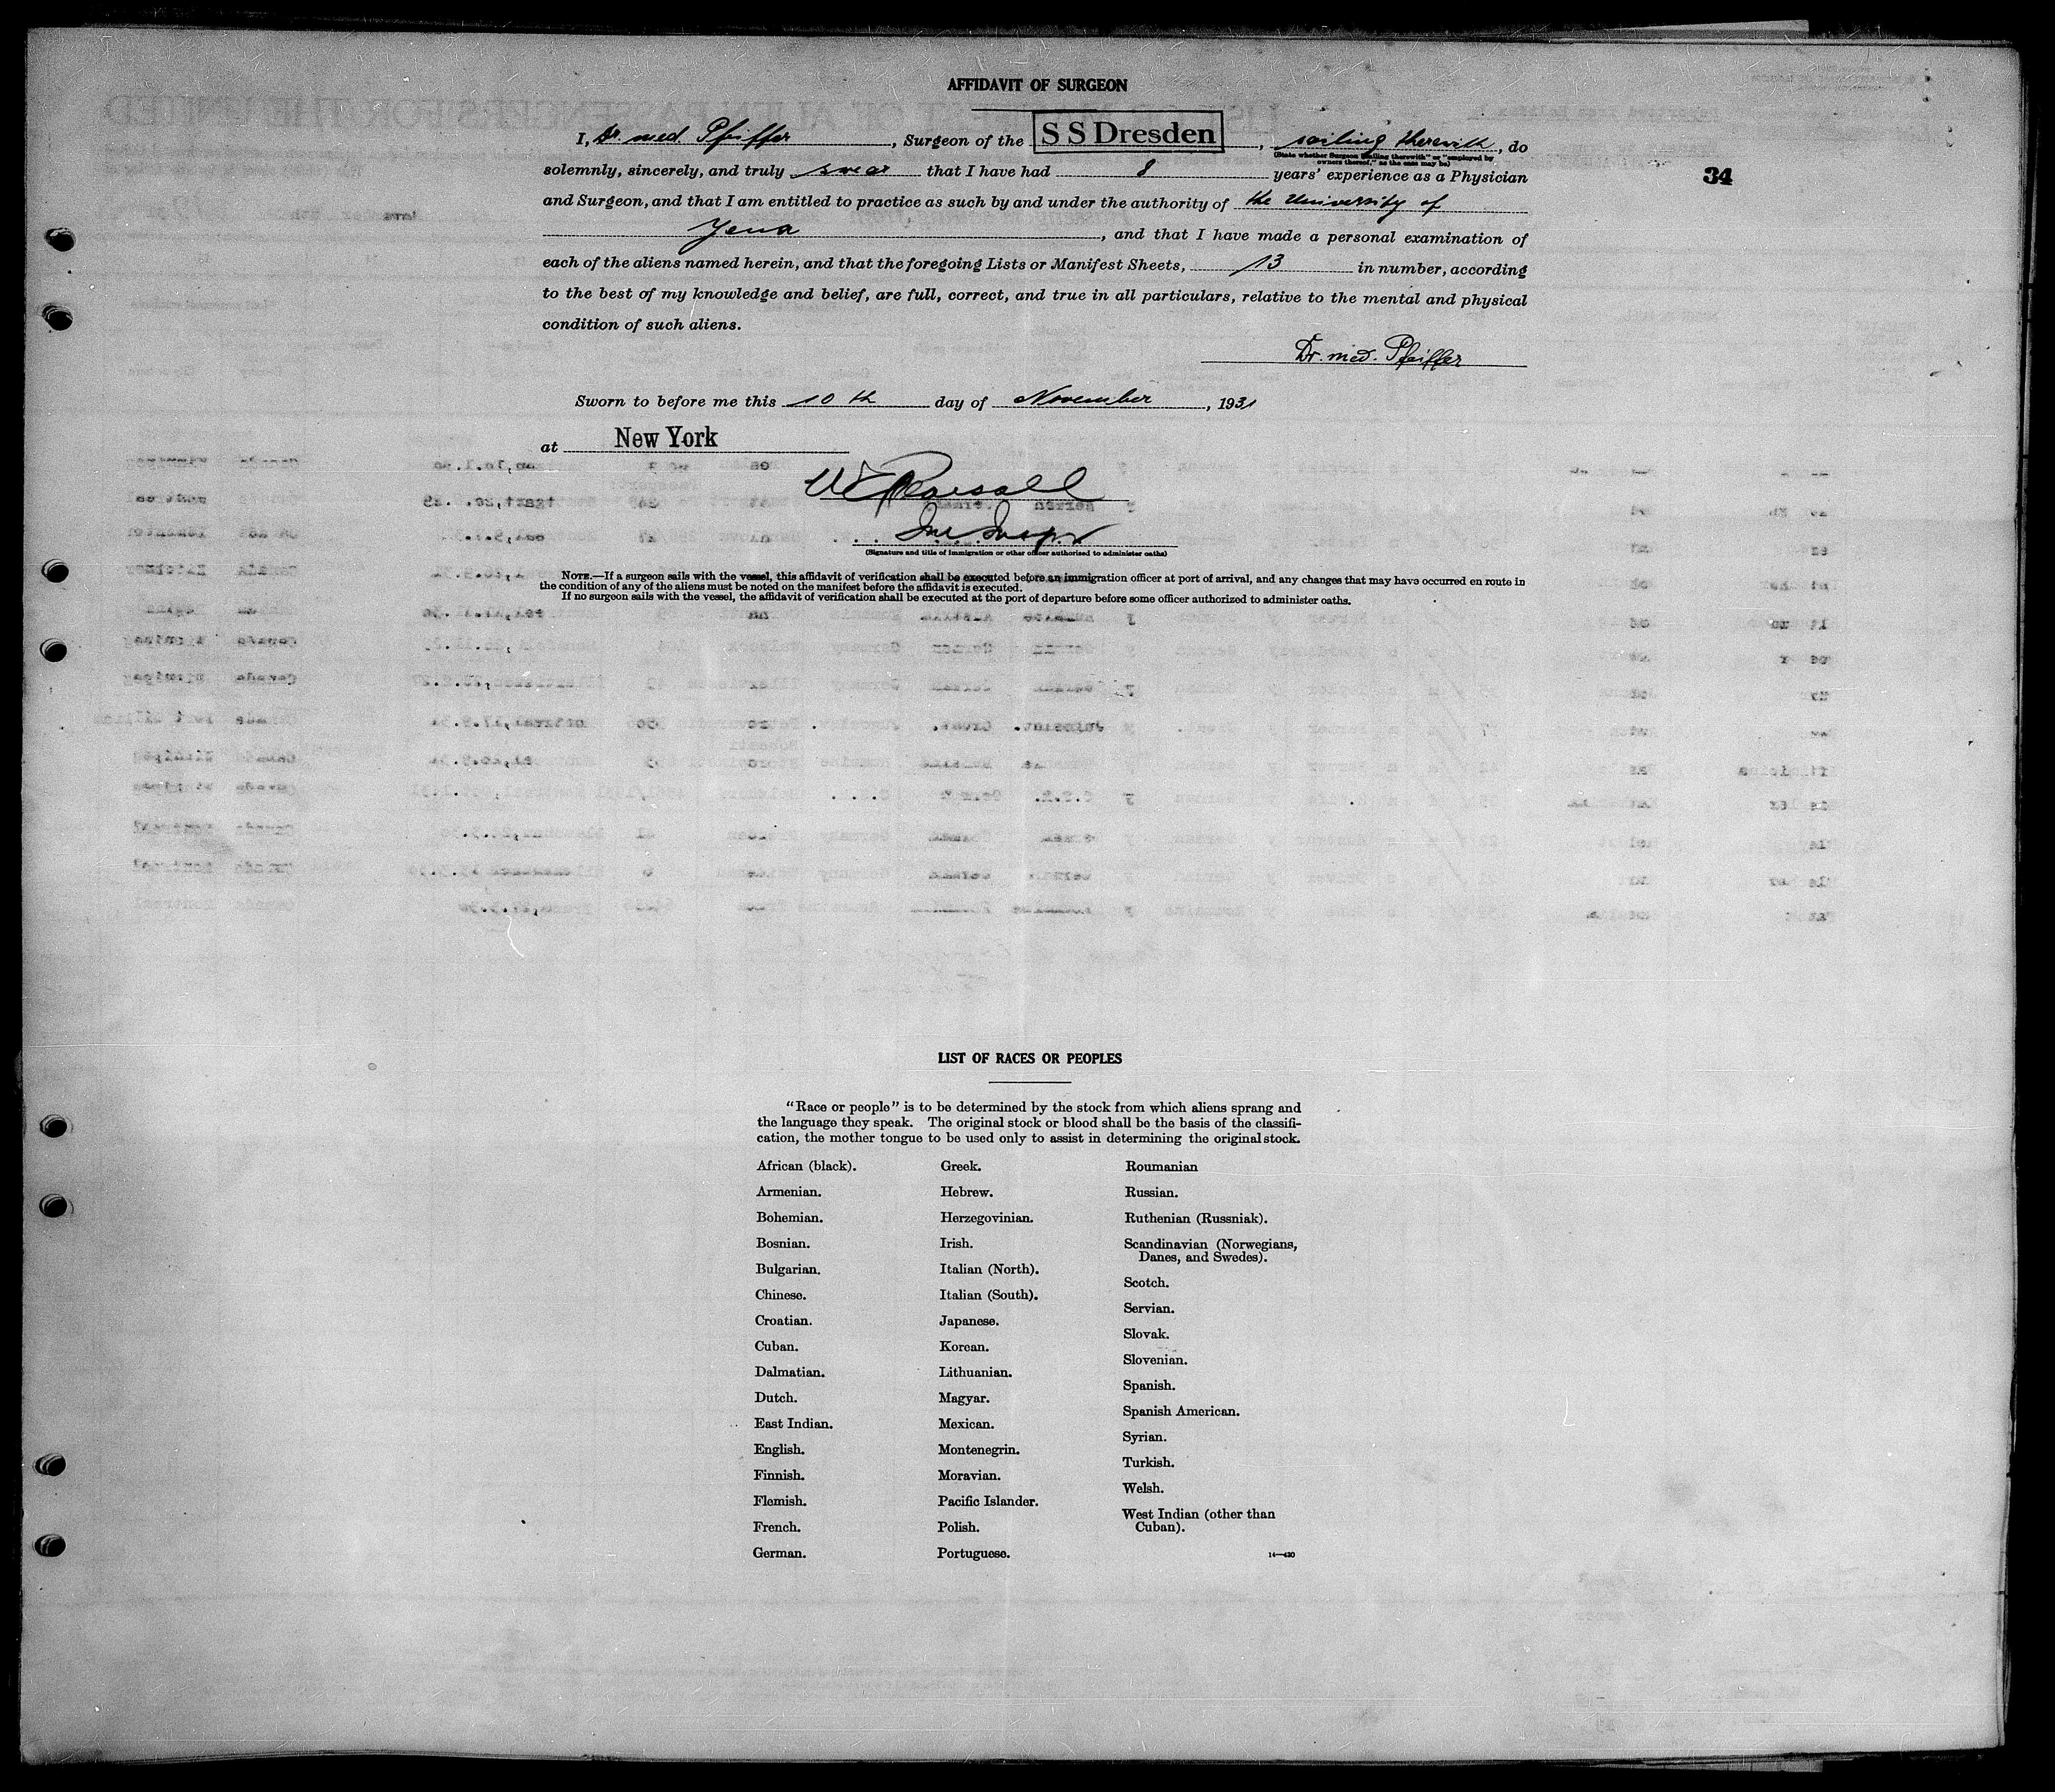 AFFIDAVIT OF SURGEON
I, Dr. med. Pfeiffer, Surgeon of the SS Dresden, sailing therewith, do
(State whether Surgeon "sailing therewith" or "employed by
owners thereof," as the case may be)
34
solemnly, sincerely, and truly swear that I have had 8 years' experience as a Physician
and Surgeon, and that I am entitled to practice as such by and under the authority of the University of
Jena, and that I have made a personal examination of
each of the aliens named herein, and that the foregoing Lists or Manifest Sheets, 13 in number, according
to the best of my knowledge and belief, are full, correct, and true in all particulars, relative to the mental and physical
condition of such aliens.
Dr. med. Pfeiffer
Sworn to before me this 10th day of November, 1931
at New York
(Signature and title of immigration or other officer authorized to administer oaths)
NOTE.—If a surgeon sails with the vessel, this affidavit of verification shall be executed before an immigration officer at port of arrival, and any changes that may have occurred en route in
the condition of any of the aliens must be noted on the manifest before the affidavit is executed.
If no surgeon sails with the vessel, the affidavit of verification shall be executed at the port of departure before some officer authorized to administer oaths.
LIST OF RACES OR PEOPLES
"Race or people" is to be determined by the stock from which aliens sprang and
the language they speak. The original stock or blood shall be the basis of the classifi-
cation, the mother tongue to be used only to assist in determining the original stock.
African (black).
Armenian.
Bohemian.
Bosnian.
Bulgarian.
Chinese.
Croatian.
Cuban.
Dalmatian.
Dutch.
East Indian.
English.
Finnish.
Flemish.
French.
German.
Greek.
Hebrew.
Herzegovinian.
Irish.
Italian (North).
Italian (South).
Japanese.
Korean.
Lithuanian.
Magyar.
Mexican.
Montenegrin.
Moravian.
Pacific Islander.
Polish.
Portuguese.
Roumanian
Russian.
Ruthenian (Russniak).
Scandinavian (Norwegians,
Danes, and Swedes).
Scotch.
Servian.
Slovak.
Slovenian.
Spanish.
Spanish American.
Syrian.
Turkish.
Welsh.
West Indian (other than
Cuban).
14—420